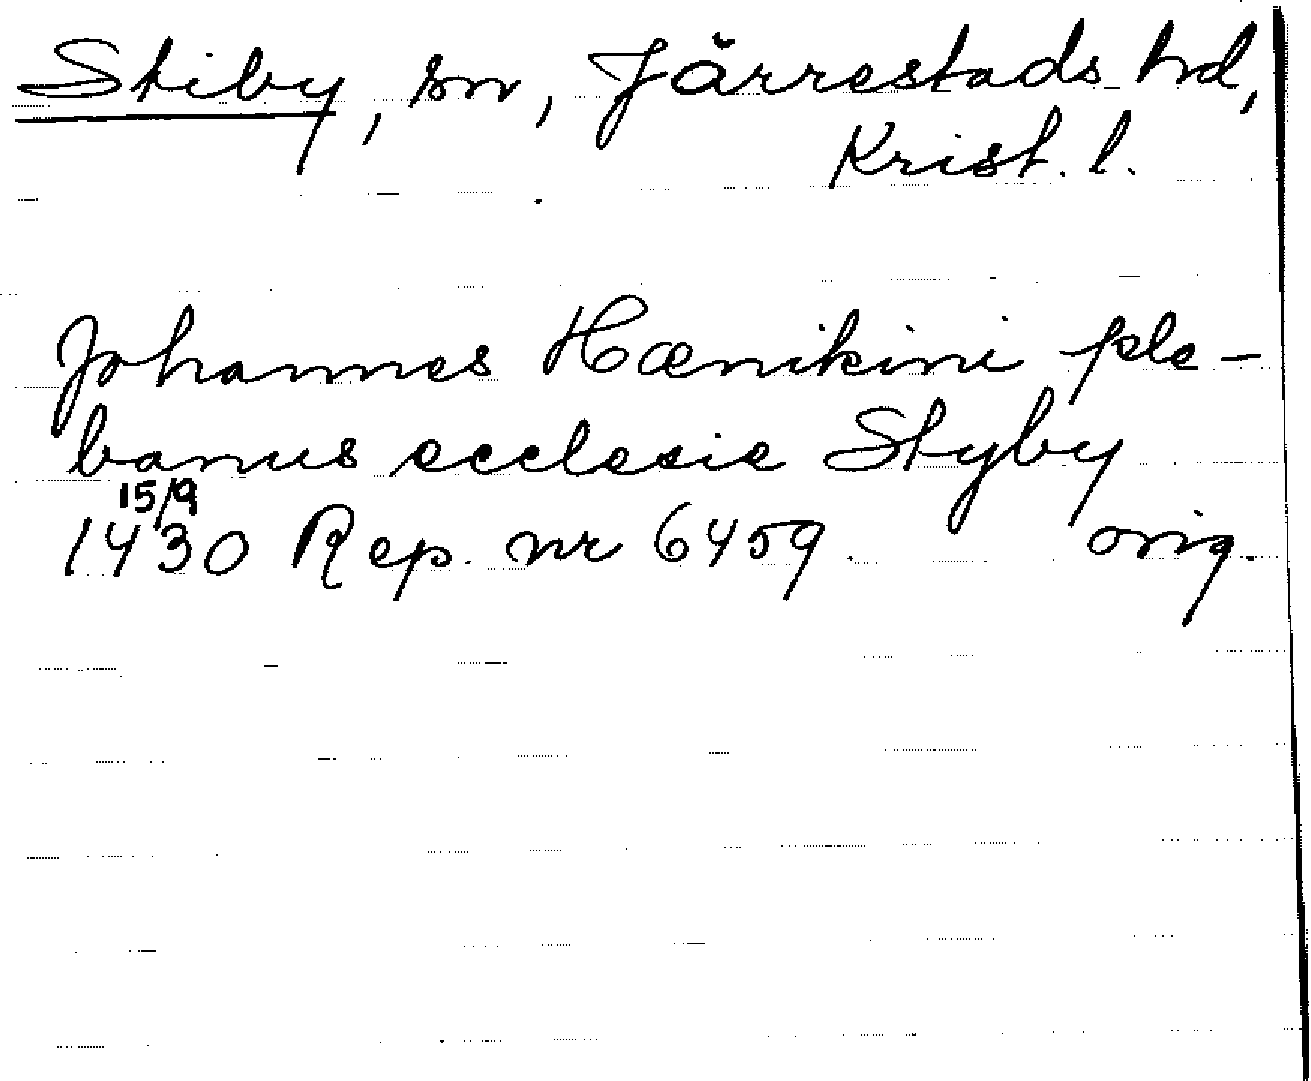 Stiby, sn, Järrestads hd,
Krist. l.
Johannes Hænikini ple-
banus ecclesie Styby
15/9
1430 Rep. nr 6459. orig.